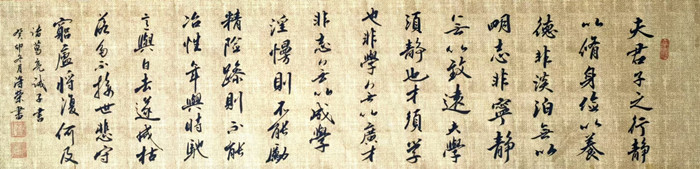 夫君子之行静
以脩身儉以養
德非淡泊無以
明志非寧静
無以致遠夫學
須静也才須學
也非學無以廣才
非志無以成學
淫慢則不能勵
精險躁則不能
冶性年與時馳
意與日去遂成枯
落多不接世悲守
窮廬將復何及
諸葛亮誡子書
癸卯月書